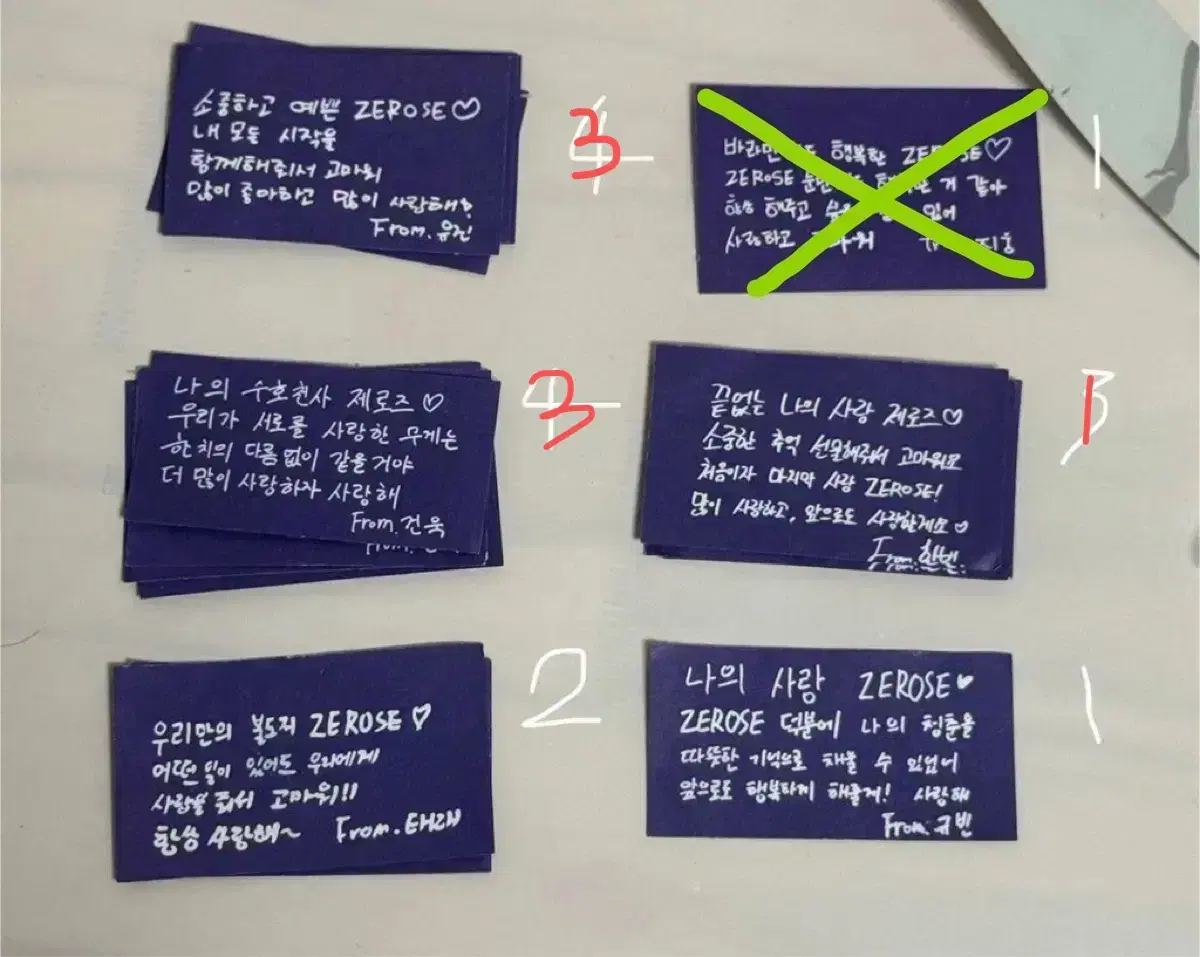 소중하고 예쁜 ZEROSE♡
내 모든 시작을
함께해줘서 고마워
많이 좋아하고 많이 사랑해?
From. 유진
3
4
바라만 행복한 ZEROSE♡
ZEROSE 거 같아
항상 해주고 있어
사랑하고 고마워 지웅
1
나의 수호천사 제로즈♡
우리가 서로를 사랑한 무게는
한 치의 다름 없이 같을거야
더 많이 사랑하자 사랑해
From. 건욱
3
4
끝없는 나의 사랑 제로즈♡
소중한 추억 선물해줘서 고마워요
처음이자 마지막 사랑 ZEROSE!
많이 사랑하고, 앞으로도 사랑할게요♡
From. 한빈.
1
3
우리만의 복도지 ZEROSE♡
어떤 일이 있어도 우리에게
사랑을 줘서 고마워!!
항상 사랑해~ From. 태래
2
나의 사랑 ZEROSE♥
ZEROSE 덕분에 나의 청춘을
따뜻한 기억으로 채울 수 있었어
앞으로도 행복하게 해줄게! 사랑해
From. 규빈
1